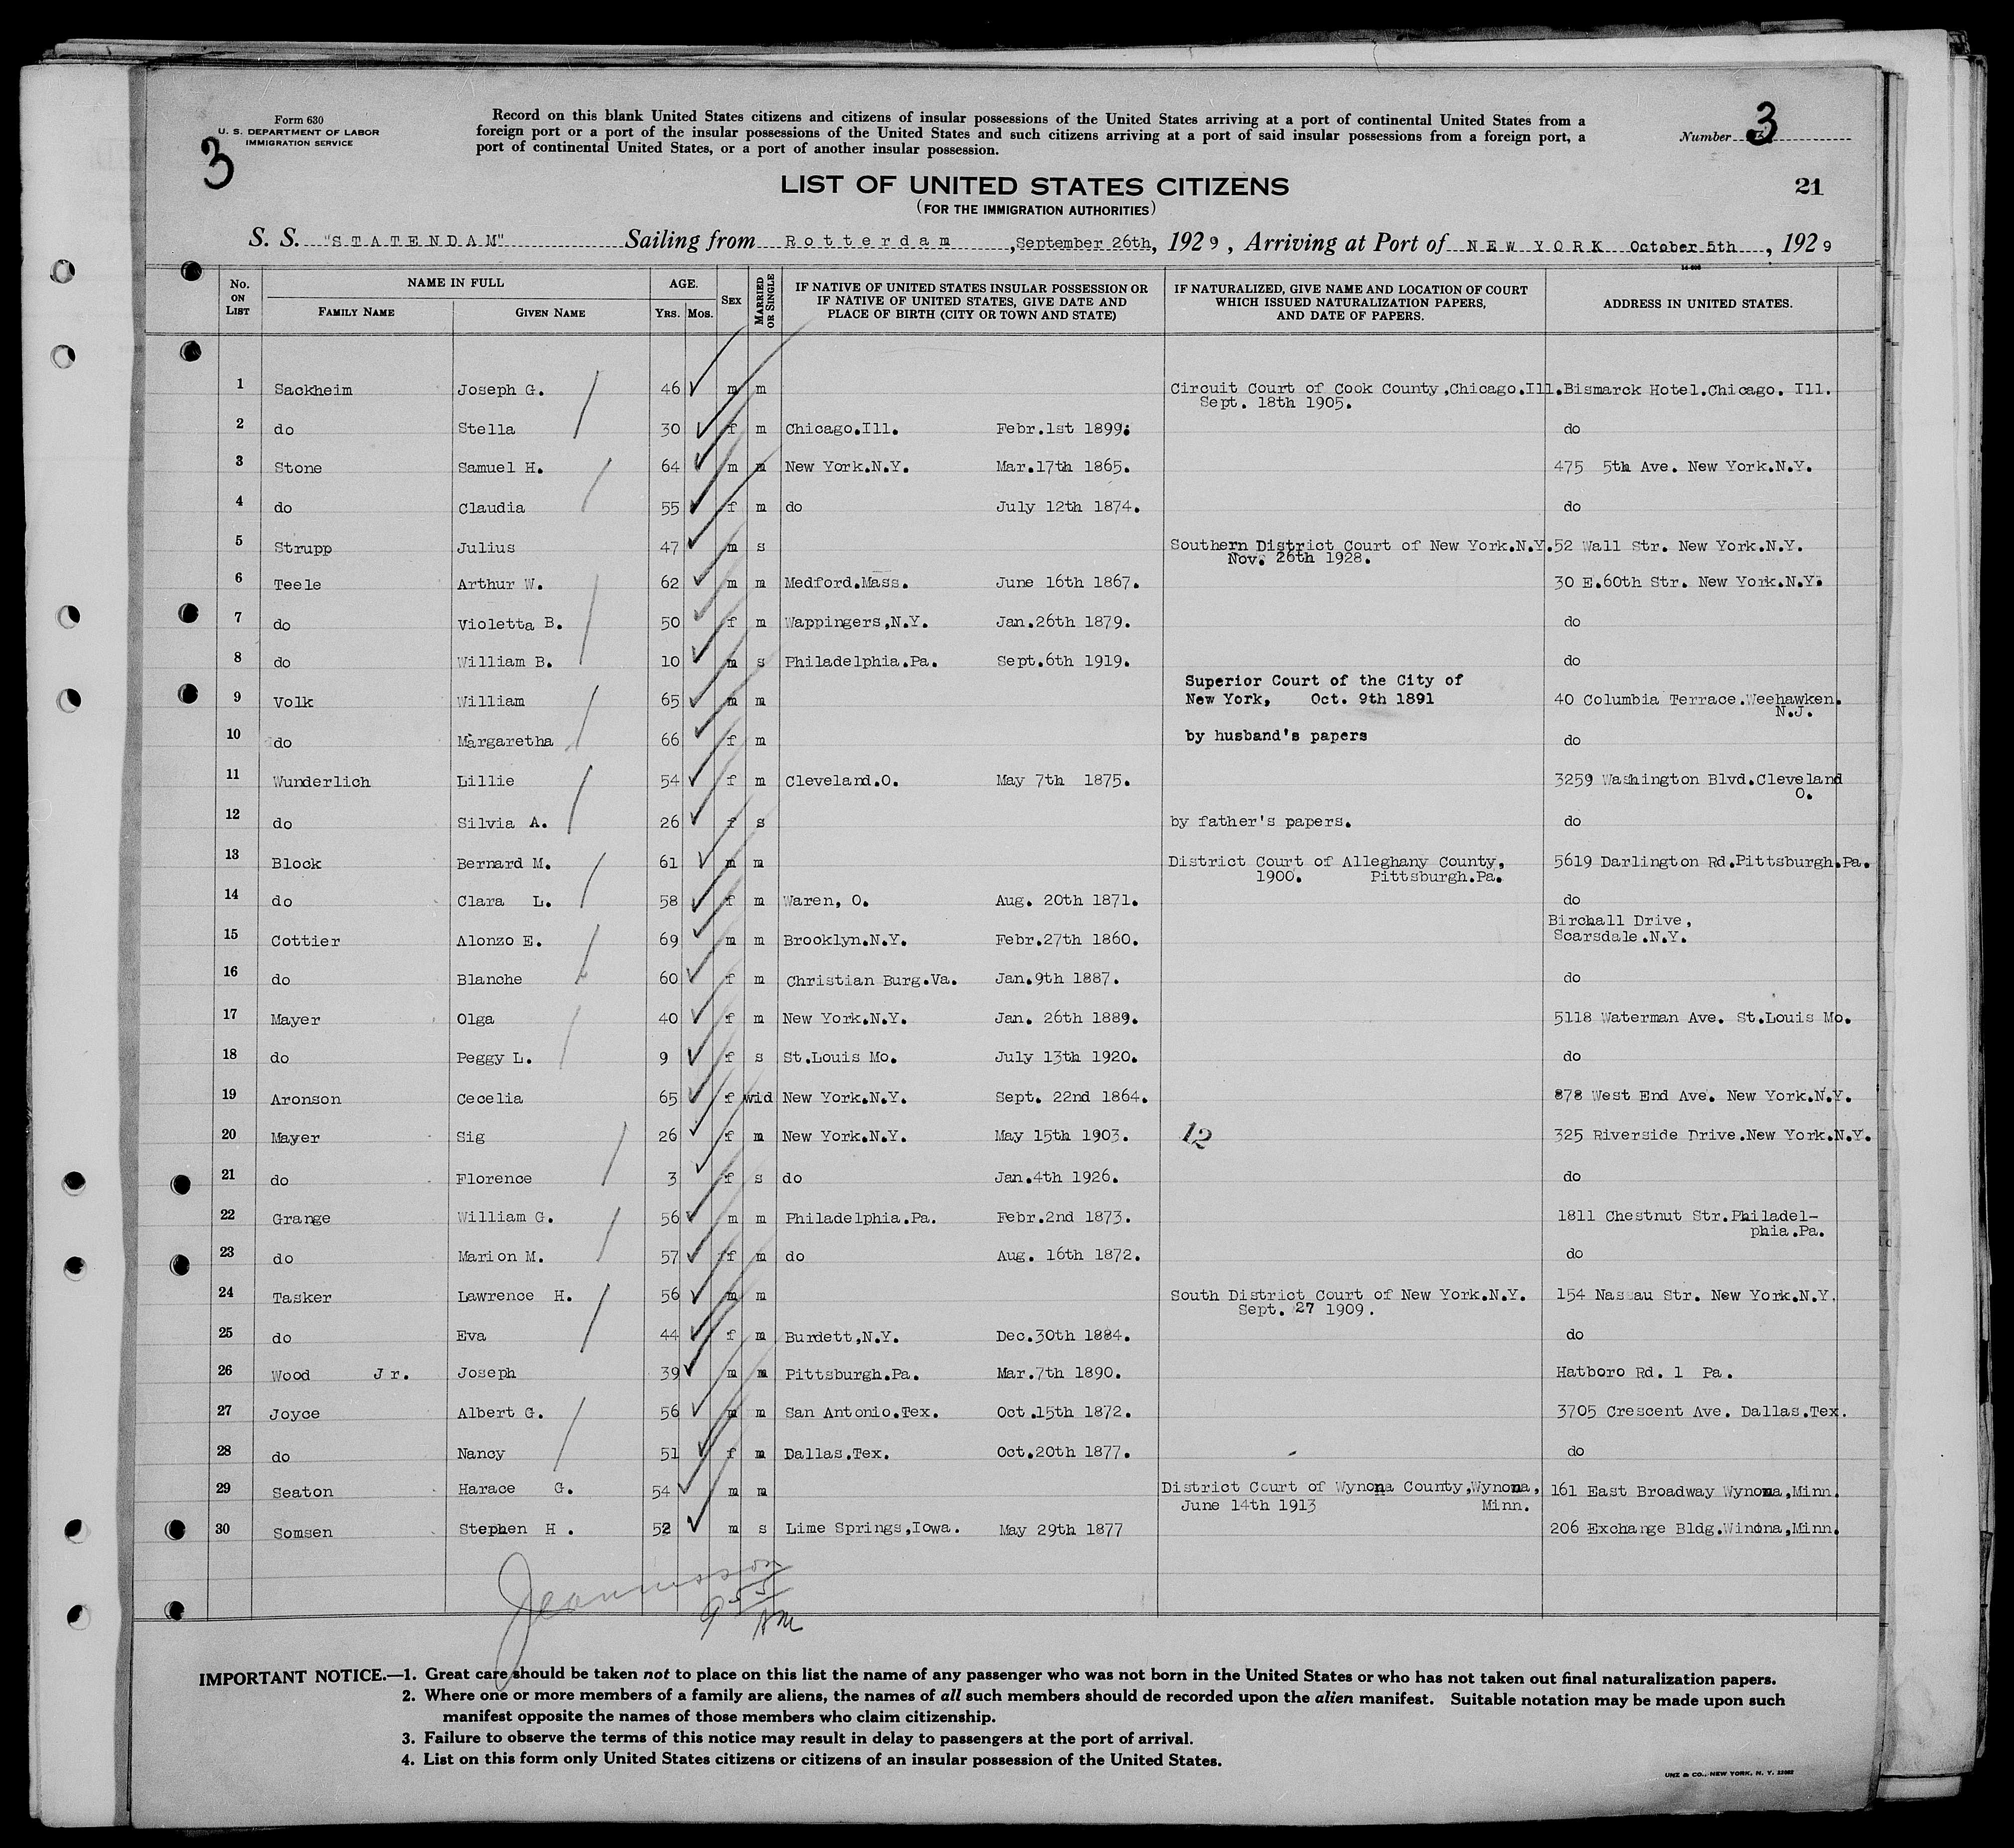 Form 630
U. S. DEPARTMENT OF LABOR
IMMIGRATION SERVICE
3
Record on this blank United States citizens and citizens of insular possessions of the United States arriving at a port of continental United States from a
foreign port or a port of the insular possessions of the United States and such citizens arriving at a port of said insular possessions from a foreign port, a
port of continental United States, or a port of another insular possession.
Number 3
LIST OF UNITED STATES CITIZENS
(FOR THE IMMIGRATION AUTHORITIES)
21
S. S. "STATENDAM" Sailing from Rotterdam, September 26th, 1929, Arriving at Port of NEW YORK October 5th, 1929
No. ON LIST NAME IN FULL FAMILY NAME GIVEN NAME AGE. YRS. MOS. SEX MARRIED OR SINGLE IF NATIVE OF UNITED STATES INSULAR POSSESSION OR IF NATIVE OF UNITED STATES, GIVE DATE AND PLACE OF BIRTH (CITY OR TOWN AND STATE) IF NATURALIZED, GIVE NAME AND LOCATION OF COURT WHICH ISSUED NATURALIZATION PAPERS, AND DATE OF PAPERS. ADDRESS IN UNITED STATES.
1 Sackheim Joseph G. 46 m m Circuit Court of Cook County,Chicago.Ill. Bismarck Hotel.Chicago. Ill.
Sept. 18th 1905.
2 do Stella 30 f m Chicago.Ill. Febr.1st 1899. do
3 Stone Samuel H. 64 m m New York.N.Y. Mar.17th 1865. 475 5th Ave. New York.N.Y.
4 do Claudia 55 f m do July 12th 1874. do
5 Strupp Julius 47 m s Southern District Court of New York.N.Y. 52 Wall Str. New York.N.Y.
Nov. 26th 1928.
6 Teele Arthur W. 62 m m Medford.Mass. June 16th 1867. 30 E.60th Str. New York.N.Y.
7 do Violetta B. 50 f m Wappingers,N.Y. Jan.26th 1879. do
8 do William B. 10 m s Philadelphia.Pa. Sept.6th 1919. do
Superior Court of the City of
9 Volk William 65 m m New York, Oct. 9th 1891 40 Columbia Terrace.Weehawken.
N.J.
10 do Margaretha 66 f m by husband's papers do
11 Wunderlich Lillie 54 f m Cleveland.O. May 7th 1875. 3259 Washington Blvd.Cleveland
O.
12 do Silvia A. 26 f s by father's papers. do
13 Block Bernard M. 61 m m District Court of Alleghany County, 5619 Darlington Rd.Pittsburgh.Pa.
1900. Pittsburgh.Pa.
14 do Clara L. 58 f m Waren, O. Aug. 20th 1871. do
Birchall Drive,
15 Cottier Alonzo E. 69 m m Brooklyn.N.Y. Febr.27th 1860. Scarsdale.N.Y.
16 do Blanche 60 f m Christian Burg.Va. Jan.9th 1887. do
17 Mayer Olga 40 f m New York.N.Y. Jan. 26th 1889. 5118 Waterman Ave. St.Louis Mo.
18 do Peggy L. 9 f s St.Louis Mo. July 13th 1920. do
19 Aronson Cecelia 65 f wid New York.N.Y. Sept. 22nd 1864. 878 West End Ave. New York.N.Y.
20 Mayer Sig 26 f m New York.N.Y. May 15th 1903. 12 325 Riverside Drive.New York.N.Y.
21 do Florence 3 f s do Jan.4th 1926. do
22 Grange William G. 56 m m Philadelphia.Pa. Febr.2nd 1873. 1811 Chestnut Str.Philadel-
phia.Pa.
23 do Marion M. 57 f m do Aug. 16th 1872. do
24 Tasker Lawrence H. 56 m m South District Court of New York.N.Y. 154 Nassau Str. New York.N.Y.
Sept. 27 1909.
25 do Eva 44 f m Burdett,N.Y. Dec.30th 1884. do
26 Wood Jr. Joseph 39 m m Pittsburgh.Pa. Mar.7th 1890. Hatboro Rd. 1 Pa.
27 Joyce Albert G. 56 m m San Antonio.Tex. Oct.15th 1872. 3705 Crescent Ave. Dallas.Tex.
28 do Nancy 51 f m Dallas.Tex. Oct.20th 1877. do
29 Seaton Harace G. 54 m m District Court of Wynona County,Wynona, 161 East Broadway Wynona,Minn.
June 14th 1913 Minn.
30 Somsen Stephen H. 52 m s Lime Springs,Iowa. May 29th 1877 206 Exchange Bldg.Winona,Minn.
IMPORTANT NOTICE.—1. Great care should be taken not to place on this list the name of any passenger who was not born in the United States or who has not taken out final naturalization papers.
2. Where one or more members of a family are aliens, the names of all such members should de recorded upon the alien manifest. Suitable notation may be made upon such
manifest opposite the names of those members who claim citizenship.
3. Failure to observe the terms of this notice may result in delay to passengers at the port of arrival.
4. List on this form only United States citizens or citizens of an insular possession of the United States.
UNZ & CO., NEW YORK, N. Y.